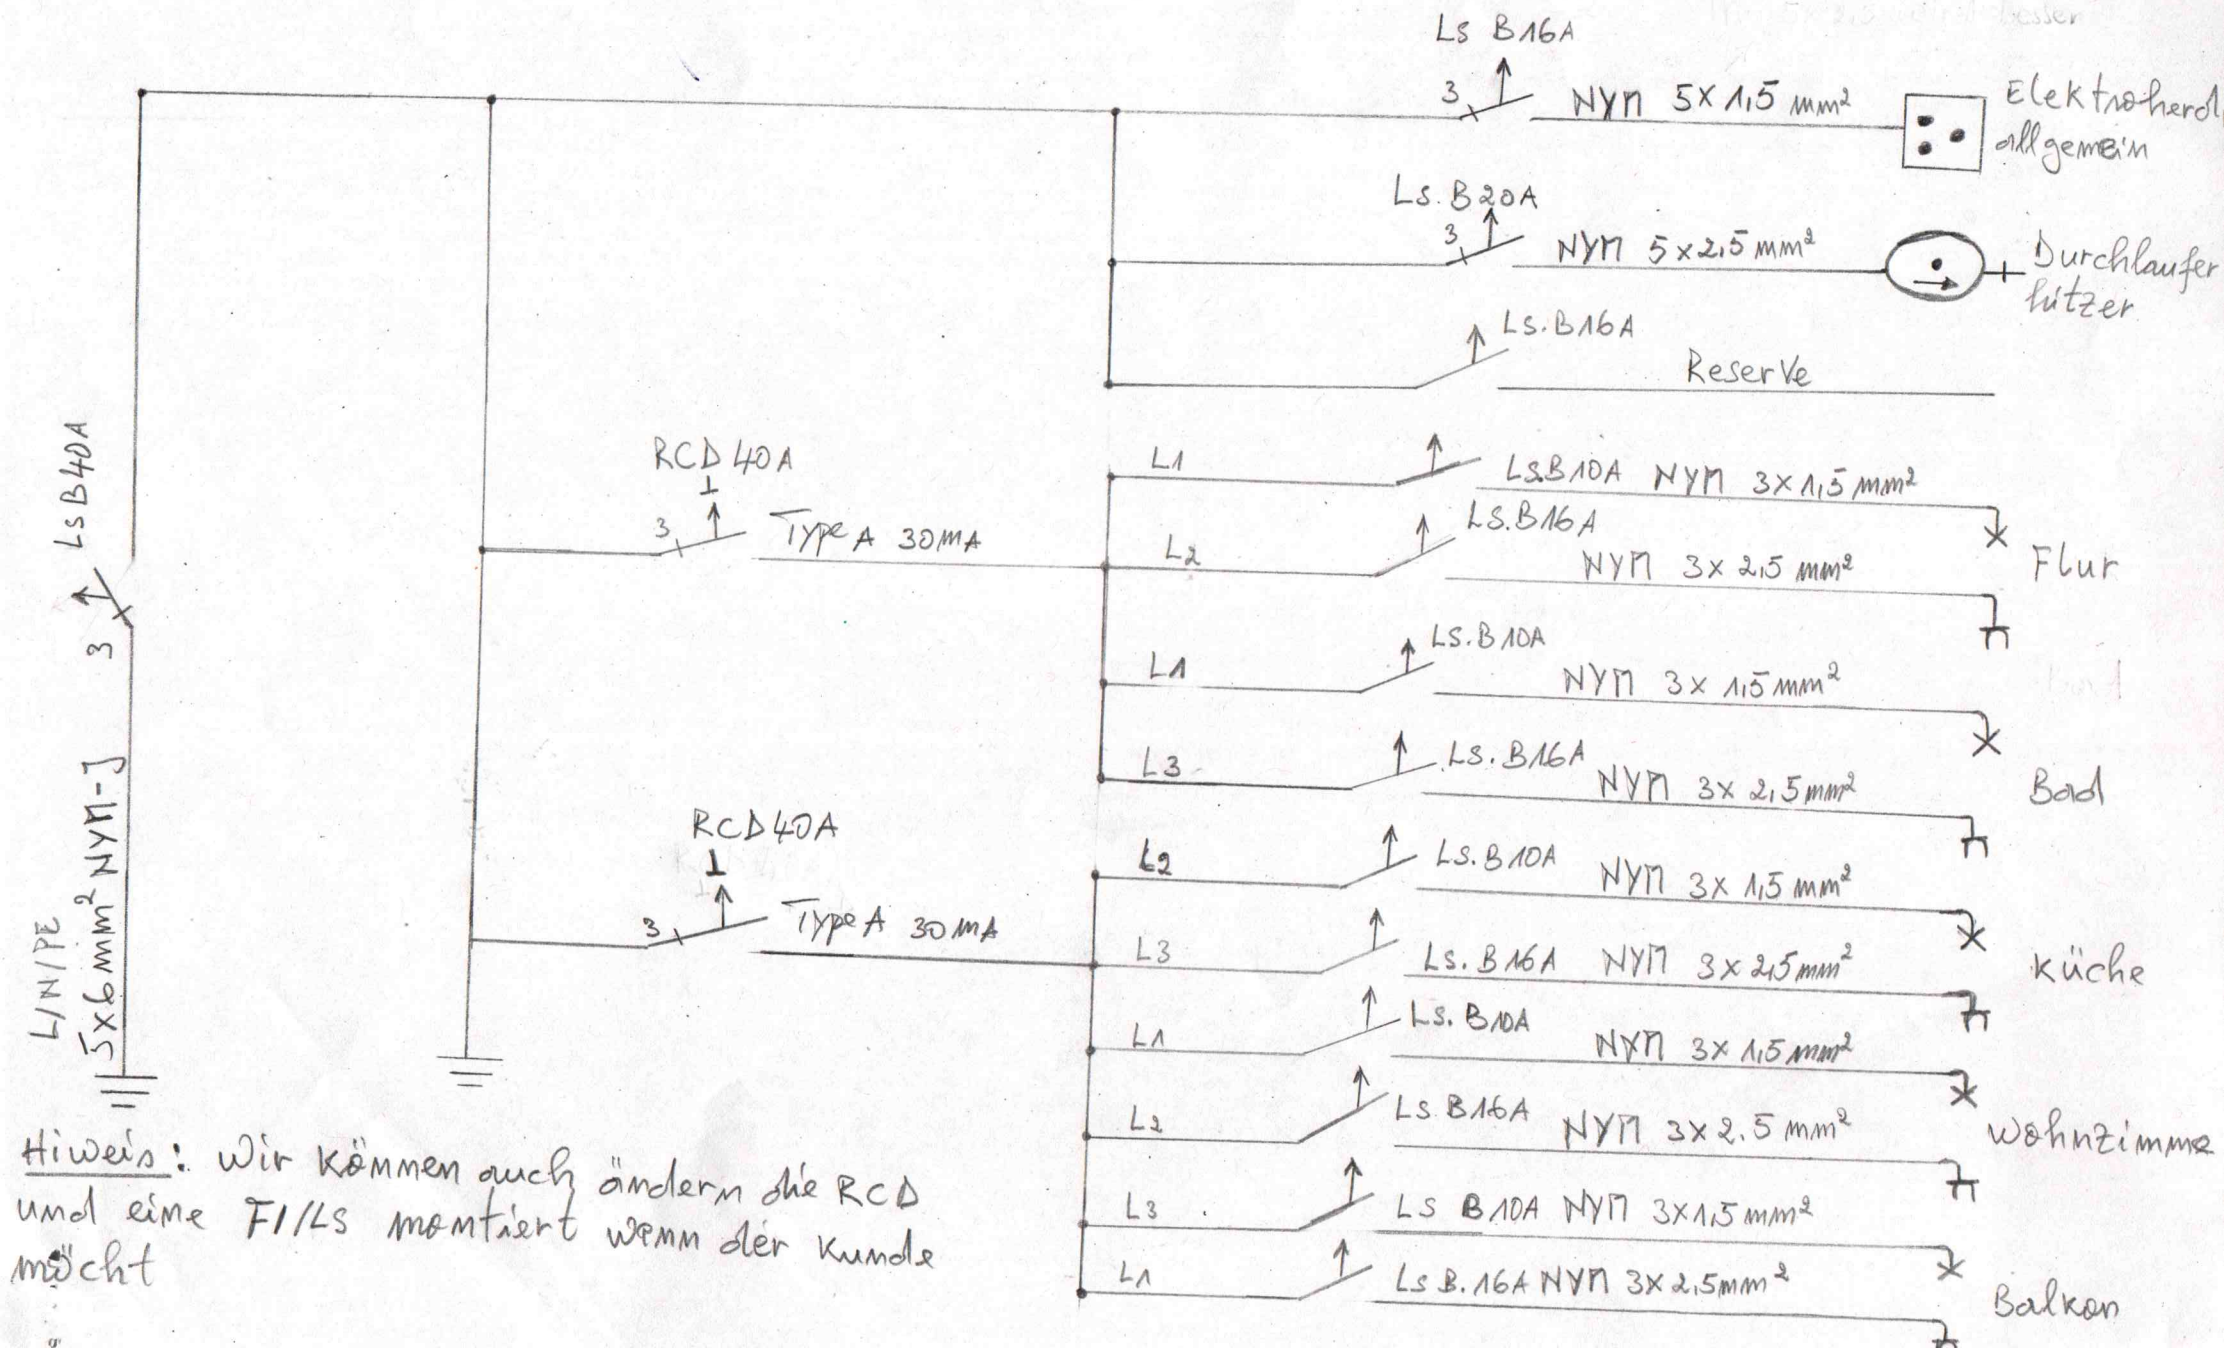 Ls B16A
3
NYM 5x1,5 mm²
Elektroherd
allgemein
Ls. B20A
3
NYM 5x2,5 mm²
Durchlaufer
hitzer
Ls. B16A
Reserve
LsB40A
3
L/N/PE
5x6mm² NYM-J
RCD 40A
3
Type A 30mA
L1
LS.B10A NYM 3x1,5 mm²
L2
LS.B16A
NYM 3x2,5 mm²
Flur
L1
LS.B10A
NYM 3x1,5 mm²
L3
LS.B16A
NYM 3x2,5 mm²
Bad
RCD40A
3
Type A 30mA
L2
LS.B10A
NYM 3x1,5 mm²
L3
LS.B16A NYM 3x2,5 mm²
Küche
L1
Ls. B10A
NYM 3x1,5 mm²
L2
LS B16A
NYM 3x2.5 mm²
Wohnzimme
L3
LS B10A NYM 3x1,5 mm²
L1
Ls B.16A NYM 3x2,5mm²
Balkon
Hiweis: Wir können auch ändern die RCD
und eine FI/LS montiert wenn der Kunde
möcht